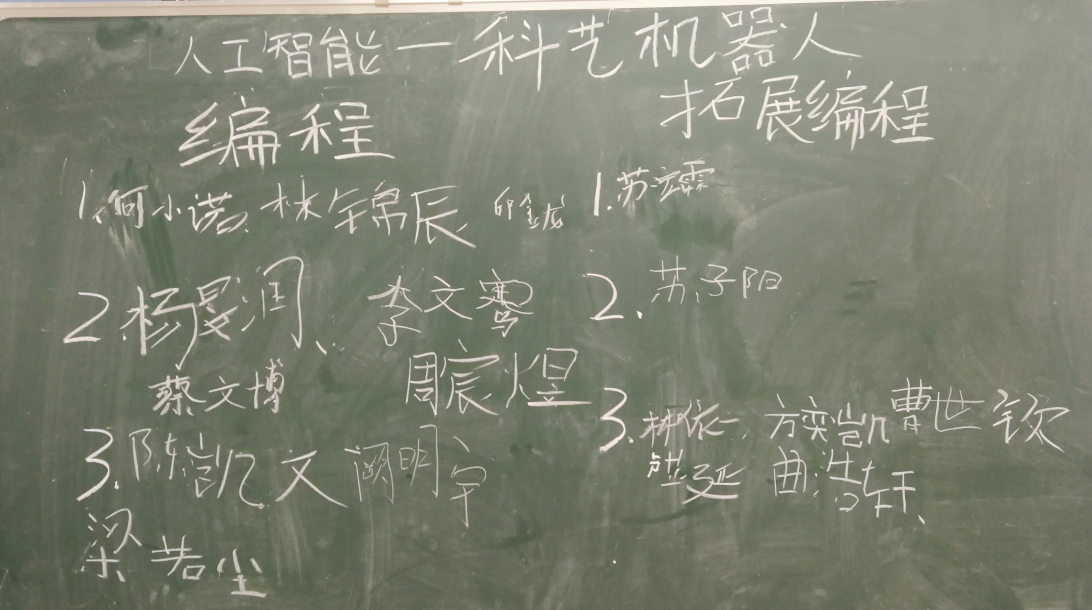 人工智能一科艺机器人
编程
拓展编程
1.何小诺、林锦辰
2.杨旻润、李文骞
蔡文博 周宸煜
3.陈凯文 阙明宇
梁若尘
1.苏
2.苏子阳
3.林依一、方奕凯 曹世钦
延 曲浩轩、